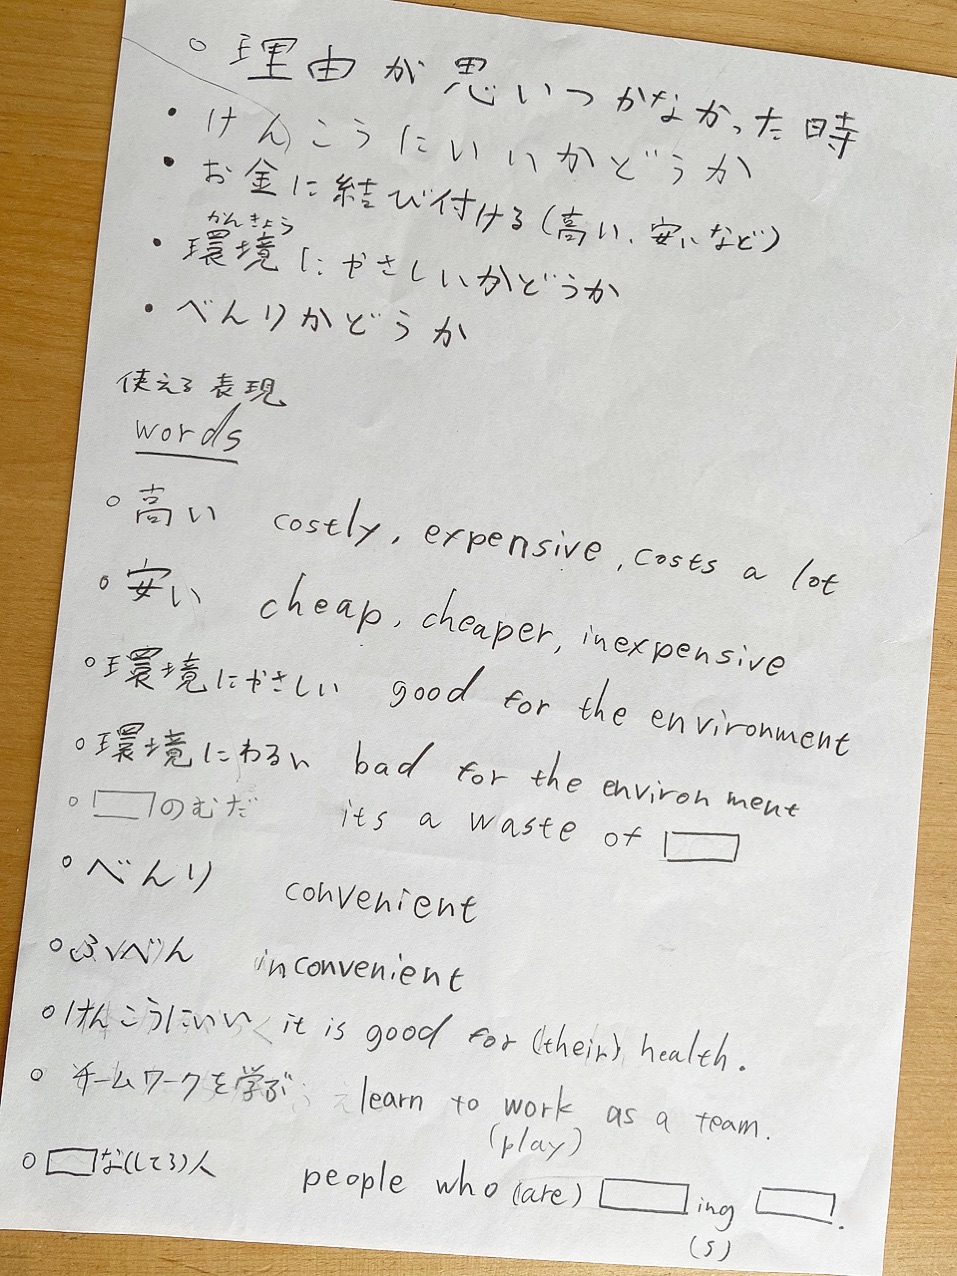 ○ 理由が思いつかなかった時
・けんこうにいいかどうか
・お金に結び付ける(高い、安いなど)
かんきょう
・環境にやさしいかどうか
・べんりかどうか
使える表現
words
○高い costly, expensive, costs a lot
○安い cheap, cheaper, inexpensive
○環境にやさしい good for the environment
○環境にわるい bad for the environment
○□のむだ its a waste of □
○べんり convenient
○ふべん inconvenient
○けんこうにいい it is good for (their) health.
○チームワークを学ぶ learn to work as a team.
(play)
○□な(してる)人 people who (are) □ing □.
(s)